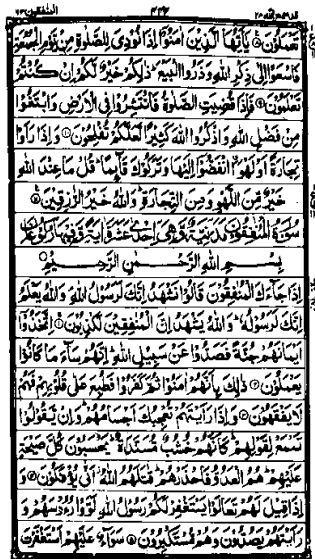 تَعْمَلُونَ ۝ يٰٓاَيُّهَا الَّذِيْنَ اٰمَنُوْٓا اِذَا نُوْدِيَ لِلصَّلٰوةِ مِنْ يَّوْمِ الْجُمُعَةِ
فَاسْعَوْا اِلٰى ذِكْرِ اللّٰهِ وَذَرُوا الْبَيْعَ ؕ ذٰلِكُمْ خَيْرٌ لَّكُمْ اِنْ كُنْتُمْ
تَعْلَمُوْنَ ۝ فَاِذَا قُضِيَتِ الصَّلٰوةُ فَانْتَشِرُوْا فِي الْاَرْضِ وَابْتَغُوْا
مِنْ فَضْلِ اللّٰهِ وَاذْكُرُوا اللّٰهَ كَثِيْرًا لَّعَلَّكُمْ تُفْلِحُوْنَ ۝ وَاِذَا رَاَوْا
تِجَارَةً اَوْ لَهْوَا ۨ انْفَضُّوْٓا اِلَيْهَا وَتَرَكُوْكَ قَآئِمًا ؕ قُلْ مَا عِنْدَ اللّٰهِ
خَيْرٌ مِّنَ اللَّهْوِ وَمِنَ التِّجَارَةِ ؕ وَاللّٰهُ خَيْرُ الرّٰزِقِيْنَ ۝
سُوْرَةُ الْمُنٰفِقُوْنَ مَدَنِيَّةٌ وَّهِيَ اِحْدٰى عَشَرَةَ اٰيَةً
بِسْمِ اللّٰهِ الرَّحْمٰنِ الرَّحِيْمِ
اِذَا جَآءَكَ الْمُنٰفِقُوْنَ قَالُوْا نَشْهَدُ اِنَّكَ لَرَسُوْلُ اللّٰهِ ۘ وَاللّٰهُ يَعْلَمُ
اِنَّكَ لَرَسُوْلُهٗ ؕ وَاللّٰهُ يَشْهَدُ اِنَّ الْمُنٰفِقِيْنَ لَكٰذِبُوْنَ ۝ اِتَّخَذُوْٓا
اَيْمَانَهُمْ جُنَّةً فَصَدُّوْا عَنْ سَبِيْلِ اللّٰهِ ؕ اِنَّهُمْ سَآءَ مَا كَانُوْا
يَعْمَلُوْنَ ۝ ذٰلِكَ بِاَنَّهُمْ اٰمَنُوْا ثُمَّ كَفَرُوْا فَطُبِعَ عَلٰى قُلُوْبِهِمْ فَهُمْ
لَا يَفْقَهُوْنَ ۝ وَاِذَا رَاَيْتَهُمْ تُعْجِبُكَ اَجْسَامُهُمْ ؕ وَاِنْ يَّقُوْلُوْا
تَسْمَعْ لِقَوْلِهِمْ ؕ كَاَنَّهُمْ خُشُبٌ مُّسَنَّدَةٌ ؕ يَحْسَبُوْنَ كُلَّ صَيْحَةٍ
عَلَيْهِمْ ؕ هُمُ الْعَدُوُّ فَاحْذَرْهُمْ ؕ قٰتَلَهُمُ اللّٰهُ ۫ اَنّٰى يُؤْفَكُوْنَ ۝ وَ
اِذَا قِيْلَ لَهُمْ تَعَالَوْا يَسْتَغْفِرْ لَكُمْ رَسُوْلُ اللّٰهِ لَوَّوْا رُءُوْسَهُمْ وَ
رَاَيْتَهُمْ يَصُدُّوْنَ وَهُمْ مُّسْتَكْبِرُوْنَ ۝ سَوَآءٌ عَلَيْهِمْ اَسْتَغْفَرْتَ